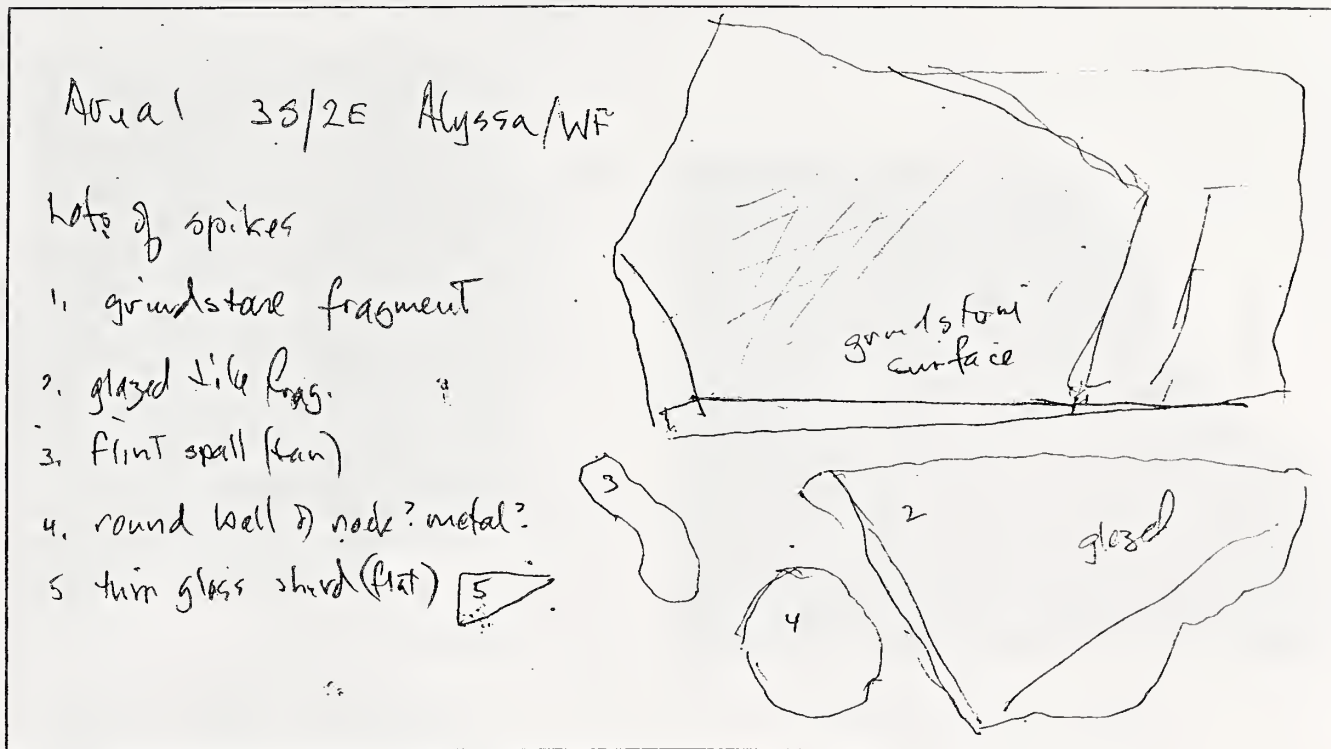 Area 1 3S/2E Alyssa/WF
Lots of spikes
1. grindstone fragment
2. glazed tile frag.
3. flint spall (tan)
4. round ball of rock? metal?
5 thin glass shard (flat) 5
grindstone
surface
3
2
glazed
4